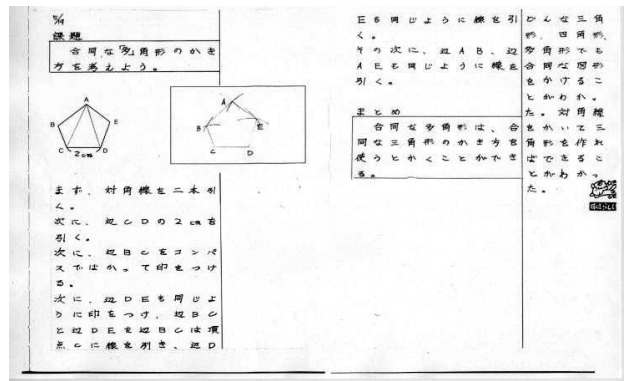 5/19
課題
合同な多角形のかき
方を考えよう。
A
B
E
C
D
2cm
A
B
E
C
D
まず、対角線を二本引
く。
次に、辺CDの2cmを
引く。
次に、辺BCをコンパ
スではかって印をつけ
る。
次に、辺DEも同じよ
うに印をつけ、辺BC
と辺DEを辺BCは頂
点Cに線を引き、辺D
Eも同じように線を引
く。
その次に、辺AB、辺
AEも同じように線を
引く。
まとめ
合同な多角形は、合
同な三角形のかき方を
使うとかくことができ
る。
どんな三角
形、四角形、
多角形でも
合同な図形
をかけるこ
とがわか。
た。対角線
をかいて三
角形を作れ
ばできるこ
とがわかっ
た。